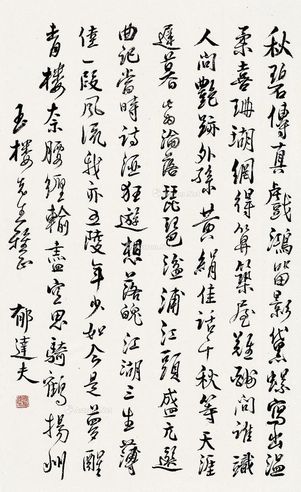 秋碧傳真戲鴻留影黛螺寫出溫
柔喜珊瑚網得筭築屋難酬問誰識
人間艷跡外孫黃絹佳話千秋等天涯
遲暮淪落琵琶湓浦江頭盛元選
曲記當時詩酒狂遊想落魄江湖三生薄
倖一段風流我亦五陵年少如今是夢醒
青樓奈腰纏輸盡空思騎鶴揚州
玉樓先生雅正 郁達夫